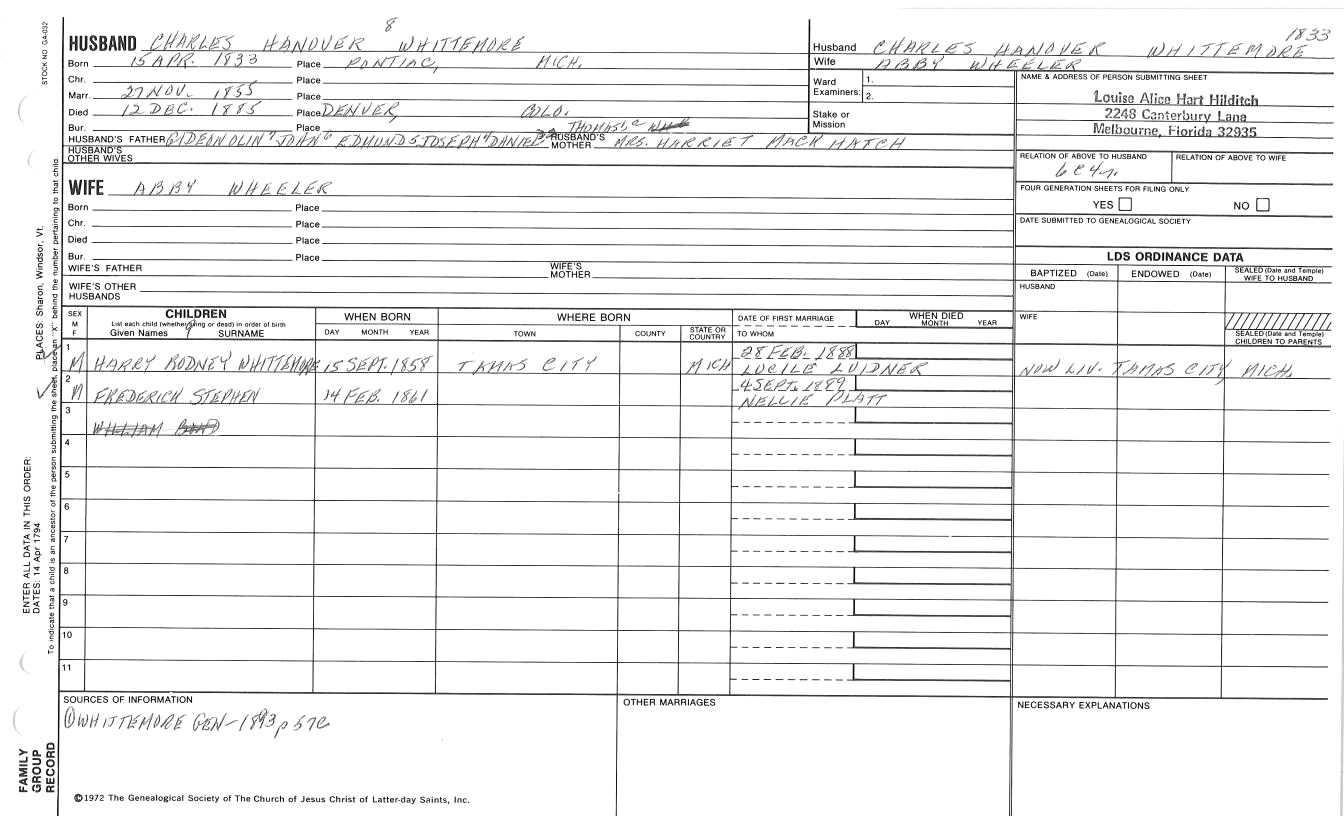 8
1833
STOCK NO. GA-032
HUSBAND CHARLES HANOVER WHITTEMORE
Born 15 APR. 1833 Place PONTIAC, MICH.
Chr. Place
Marr. 27 NOV. 1855 Place
Died 12 DEC. 1885 Place DENVER, COLO.
Bur. Place
THOMAS
HUSBAND'S FATHER GIDEON OLIN 7 JOHN 6 EDMUND 5 JOSEPH 4 DANIEL HUSBAND'S MOTHER MRS. HARRIET MACK HATCH
HUSBAND'S OTHER WIVES
Husband CHARLES HANOVER WHITTEMORE
Wife ABBY WHEELER
Ward Examiners: 1.
2.
Stake or Mission
NAME & ADDRESS OF PERSON SUBMITTING SHEET
Louise Alice Hart Hilditch
2248 Canterbury Lane
Melbourne, Florida 32935
RELATION OF ABOVE TO HUSBAND RELATION OF ABOVE TO WIFE
6C4r.
FOUR GENERATION SHEETS FOR FILING ONLY
YES NO
DATE SUBMITTED TO GENEALOGICAL SOCIETY
WIFE ABBY WHEELER
Born Place
Chr. Place
Died Place
Bur. Place
WIFE'S FATHER WIFE'S MOTHER
WIFE'S OTHER HUSBANDS
LDS ORDINANCE DATA
BAPTIZED (Date) ENDOWED (Date) SEALED (Date and Temple) WIFE TO HUSBAND
HUSBAND
WIFE
SEALED (Date and Temple) CHILDREN TO PARENTS
SEX M F
CHILDREN
List each child (whether living or dead) in order of birth
Given Names SURNAME
WHEN BORN
DAY MONTH YEAR
WHERE BORN
TOWN COUNTY STATE OR COUNTRY
DATE OF FIRST MARRIAGE
TO WHOM
WHEN DIED
DAY MONTH YEAR
1 28 FEB. 1888
M HARRY RODNEY WHITTEMORE 15 SEPT. 1858 TAMAS CITY MICH LUCILE LUIDNER NOW LIV. TAMAS CITY, MICH.
2 4 SEPT. 1889
M FREDERICK STEPHEN 14 FEB. 1861 NELLIE PLATT
3
WILLIAM
4
5
6
7
8
9
10
11
SOURCES OF INFORMATION
① WHITTEMORE GEN-1893 p 57C
OTHER MARRIAGES
NECESSARY EXPLANATIONS
©1972 The Genealogical Society of The Church of Jesus Christ of Latter-day Saints, Inc.
FAMILY
GROUP
RECORD
ENTER ALL DATA IN THIS ORDER:
DATES: 14 Apr 1794
PLACES: Sharon, Windsor, Vt.
To indicate that a child is an ancestor of the person submitting the sheet, place an "X" behind the number pertaining to that child